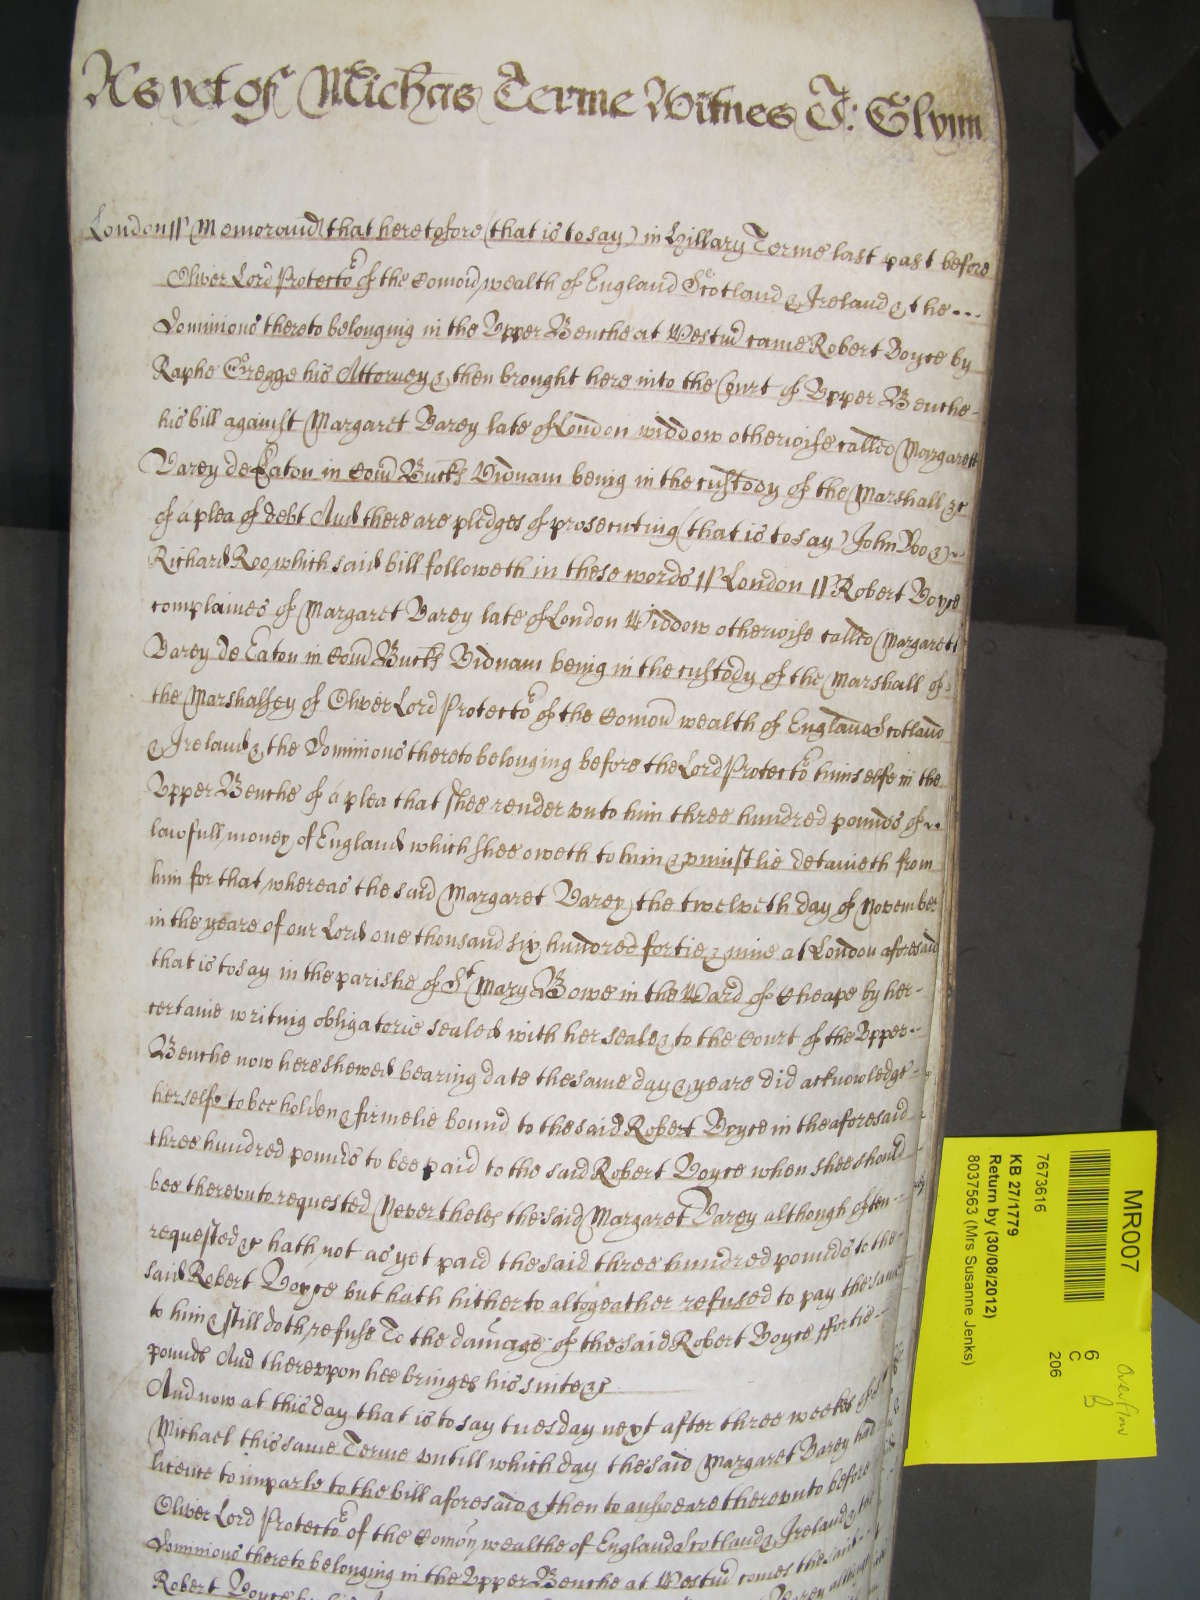 As yet of Michas Terme Witnes J: Glynn
London// Memorand that heretofore (that is to say) in Hillary Terme last past before
Oliver Lord Protector of the Comon wealth of England Scotland & Ireland & the
Dominions thereto belonging in the Upper Benche at Westm came Robert Boyce by
Raphe Gregge his Attorney & then brought here into the Court of Upper Benche
his bill against Margaret Varey late of London widdow otherwise called Margarett
Varey de Eaton in Com Bucks Viduam being in the custody of the Marshall &c
of a plea of debt And there are pledges of prosecuting (that is to say) John Doo &
Richard Roo, which said bill followeth in these words // London // Robert Boyce
complaines of Margaret Varey late of London Widdow otherwise called Margarett
Varey de Eaton in Com Bucks Viduam being in the custody of the Marshall of
the Marshalsey of Oliver Lord Protector of the Comon wealth of England Scotland
& Ireland & the Dominions thereto belonging before the Lord Protector himselfe in the
Upper Benche of a plea that shee render unto him three hundred pounds of
lawfull money of England which shee oweth to him & uniustlie detaineth from
him for that whereas the said Margaret Varey the twelveth day of November
in the yeare of our Lord one thousand six hundred fortie & nine at London aforesaid
that is to say in the parishe of St Mary Bowe in the Ward of Cheape by her
certaine writing obligatorie sealed with her seale & to the Court of the Upper
Benche now here shewed bearing date the same day & yeare did acknowledge
herselfe to bee holden & firmelie bound to the said Robert Boyce in the aforesaid
three hundred pounds to bee paid to the said Robert Boyce when shee should
bee thereunto requested Never theles the said Margaret Varey although often
requested &c hath not as yet paid the said three hundred pounds to the
said Robert Boyce but hath hitherto altogeather refused to pay the same
to him & still doth refuse To the damage of the said Robert Boyce ffortie
pounds And thereupon hee bringes his suite &c
And now at this day that is to say tuesday next after three weekes of St
Michael this same Terme untill which day the said Margaret Varey had
licence to imparle to the bill aforesaid & then to answeare thereunto before
Oliver Lord Protector of the Comon wealthe of England Scotland & Ireland & the
Dominions thereto belonging in the Upper Benche at Westm comes the said
Robert Boyce by his
MR007
7673616
KB 27/1779
Return by (30/08/2012)
8037563 (Mrs Susanne Jenks)
6
C
206
Overflow
B